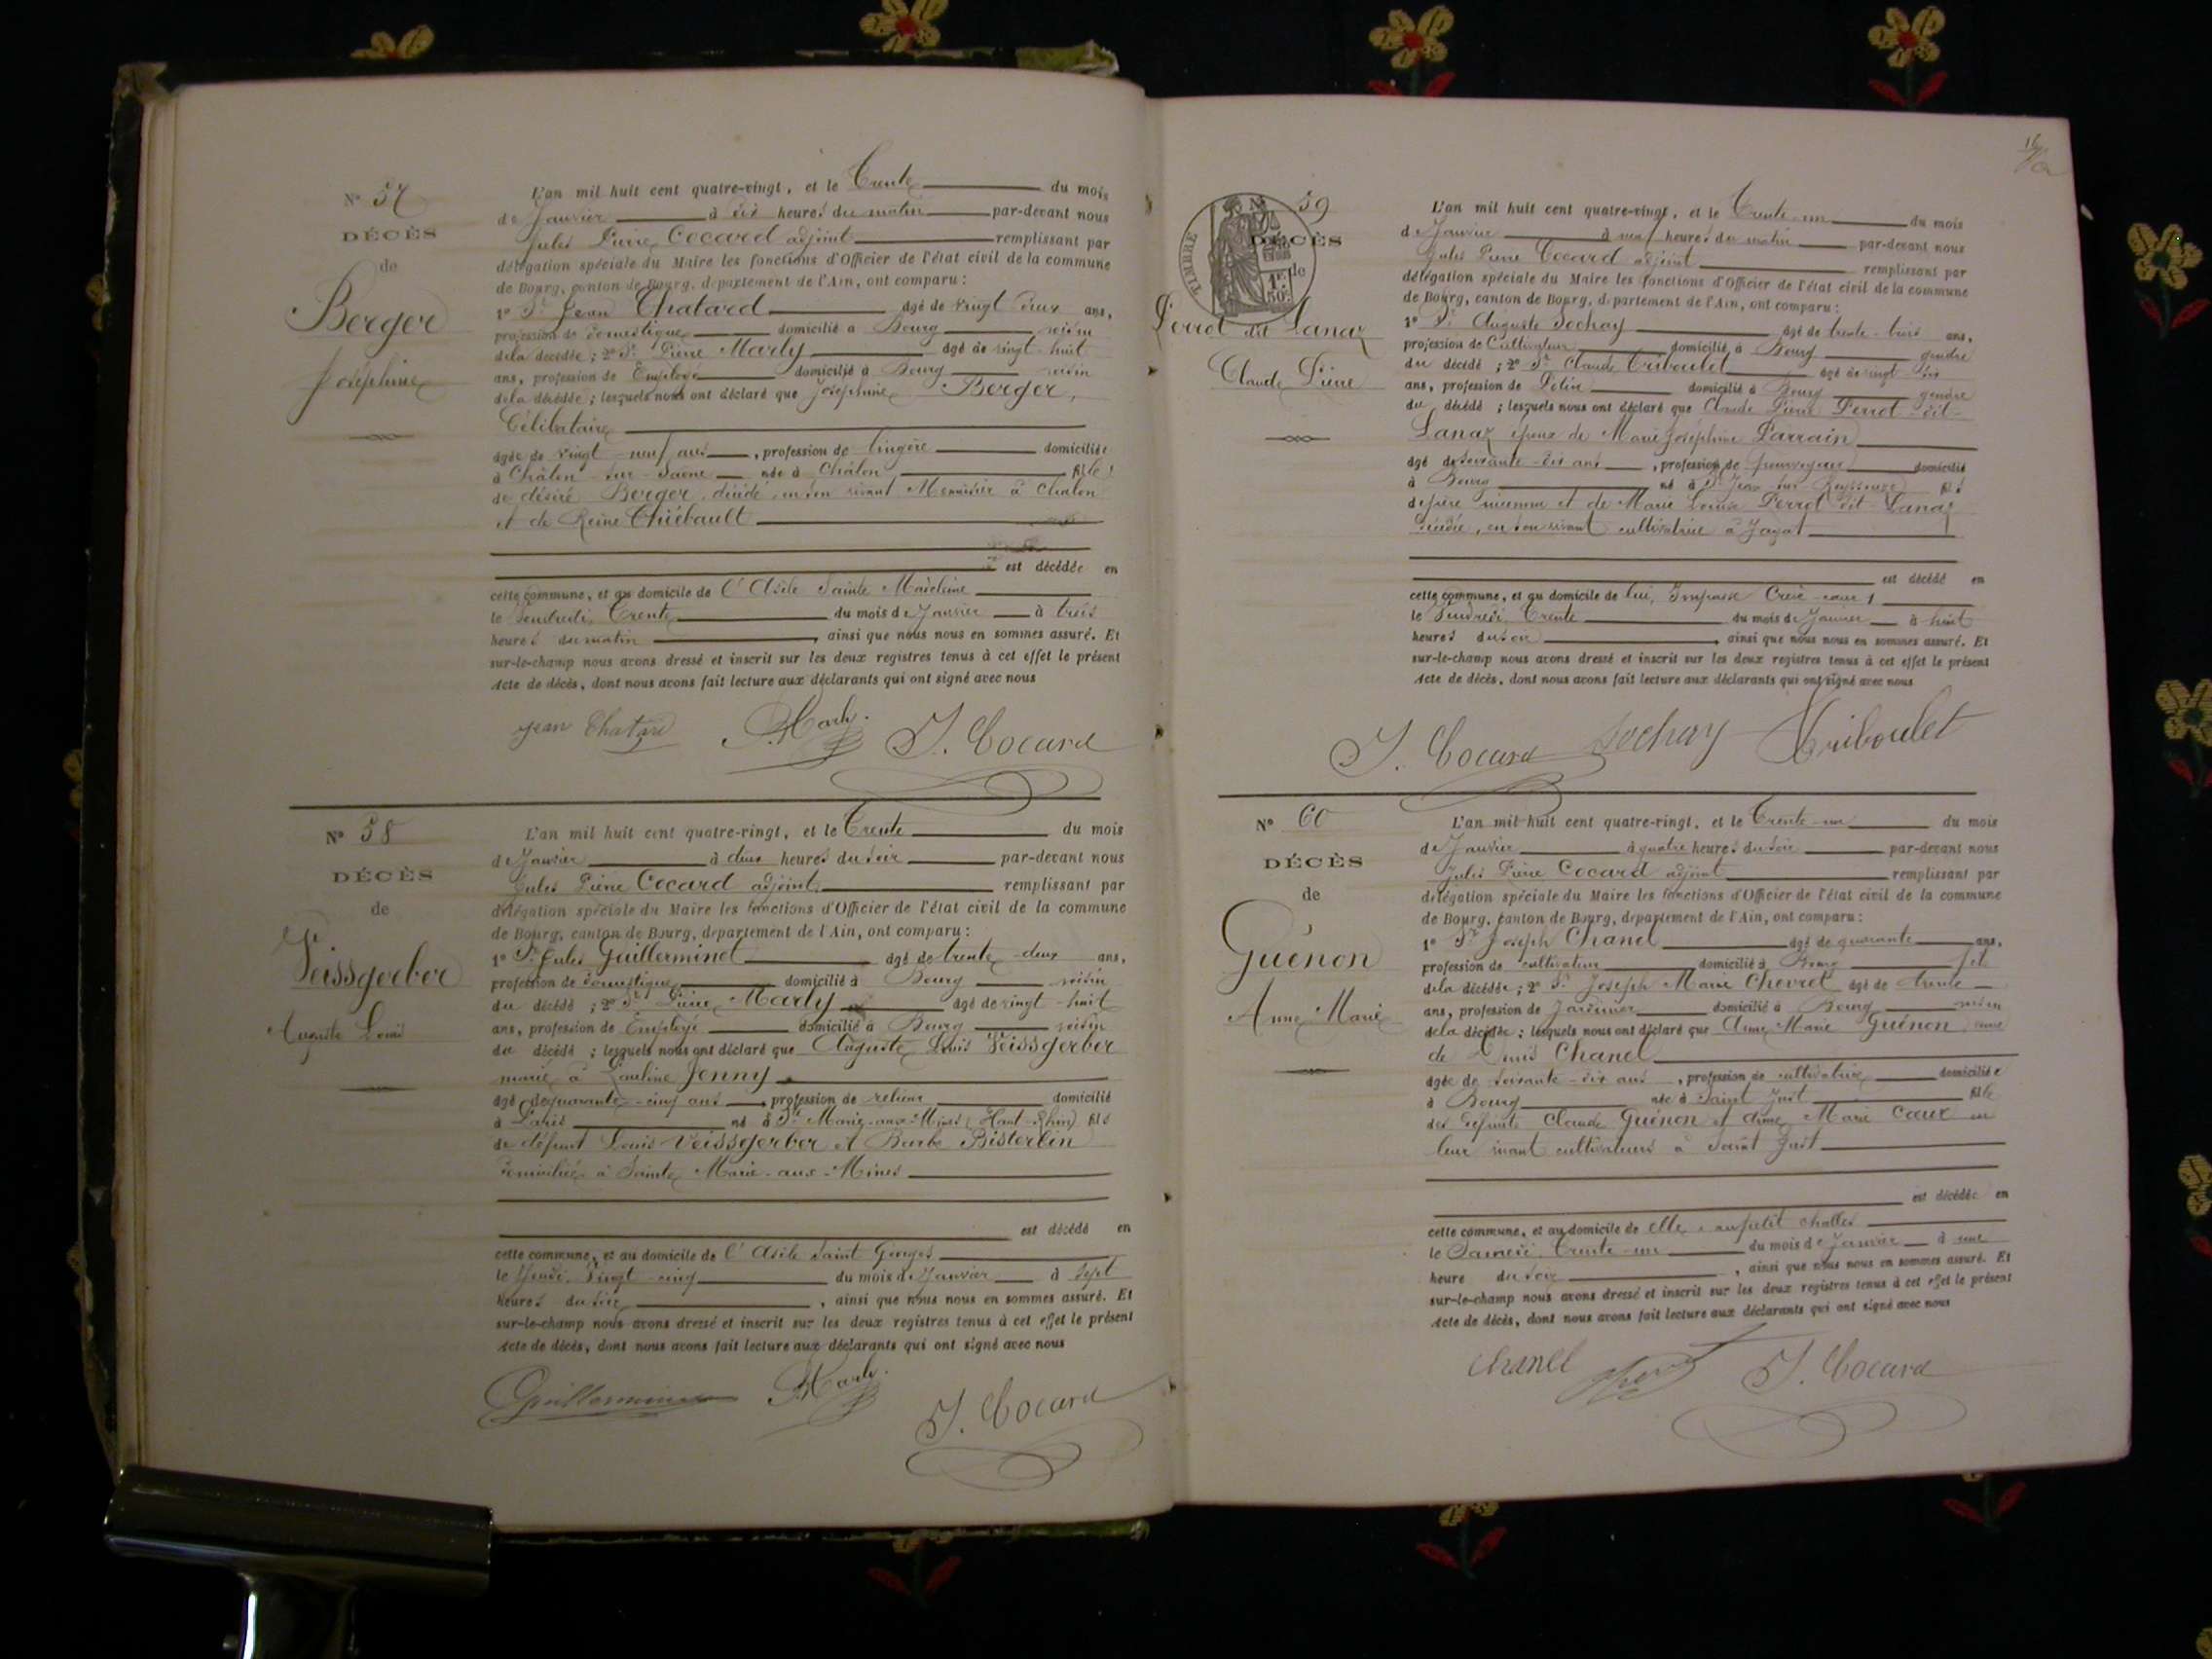 N° 57
DÉCÈS
de
Berger
Joséphine
L'an mil huit cent quatre-vingt, et le Trente du mois
de Janvier à dix heures du matin par-devant nous
Jules Pierre Cocard adjoint remplissant par
délégation spéciale du Maire les fonctions d'Officier de l'état civil de la commune
de Bourg, canton de Bourg, département de l'Ain, ont comparu :
1° Sr Jean Chatard âgé de vingt deux ans,
profession de domestique domicilié à Bourg voisin
de la décédée ; 2° Sr Pierre Marly âgé de vingt-huit
ans, profession de Employé domicilié à Bourg voisin
de la décédée ; lesquels nous ont déclaré que Joséphine Berger,
Célibataire
âgée de vingt-neuf ans, profession de lingère domiciliée
à Châlon-sur-Saône née à Châlon fille
de désiré Berger, décédé en son vivant Menuisier à Chalon
et de Reine Thiébault
est décédée en
cette commune, et au domicile de l'Asile Sainte Madeleine
le Vendredi Trente du mois de Janvier à trois
heures du matin, ainsi que nous nous en sommes assuré. Et
sur-le-champ nous avons dressé et inscrit sur les deux registres tenus à cet effet le présent
Acte de décès, dont nous avons fait lecture aux déclarants qui ont signé avec nous
Jean Chatard P. Marly J. Cocard
N° 58
DÉCÈS
de
Veissgerber
Auguste Louis
L'an mil huit cent quatre-vingt, et le Trente du mois
de Janvier à deux heures du soir par-devant nous
Jules Pierre Cocard adjoint remplissant par
délégation spéciale du Maire les fonctions d'Officier de l'état civil de la commune
de Bourg, canton de Bourg, département de l'Ain, ont comparu :
1° Sr Jules Guillerminet âgé de trente-deux ans,
profession de domestique domicilié à Bourg voisin
du décédé ; 2° Sr Pierre Marly âgé de vingt-huit
ans, profession de Employé domicilié à Bourg voisin
du décédé ; lesquels nous ont déclaré que Auguste Louis Veissgerber
marié à Pauline Jenny
âgé de quarante-cinq ans, profession de relieur domicilié
à Paris né à Ste Marie-aux-Mines (Haut-Rhin) fils
de défunt Louis Veissgerber et Barbe Bisterlin
domiciliée à Sainte Marie-aux-Mines
est décédé en
cette commune, et au domicile de l'Asile Saint Georges
le Jeudi Vingt-cinq du mois de Janvier à sept
heures du soir, ainsi que nous nous en sommes assuré. Et
sur-le-champ nous avons dressé et inscrit sur les deux registres tenus à cet effet le présent
Acte de décès, dont nous avons fait lecture aux déclarants qui ont signé avec nous
Guillerminet P. Marly J. Cocard
16
N° 59
TIMBRE
1F. 50c.
DÉCÈS
de
Perrot dit Lanaz
Claude Pierre
L'an mil huit cent quatre-vingt, et le Trente-un du mois
de Janvier à neuf heures du matin par-devant nous
Jules Pierre Cocard adjoint remplissant par
délégation spéciale du Maire les fonctions d'Officier de l'état civil de la commune
de Bourg, canton de Bourg, département de l'Ain, ont comparu :
1° Sr Auguste Sochay âgé de trente-trois ans,
profession de Cultivateur domicilié à Bourg gendre
du décédé ; 2° Sr Claude Triboulet âgé de vingt-six
ans, profession de domicilié à Bourg gendre
du décédé ; lesquels nous ont déclaré que Claude Pierre Perrot-dit-
Lanaz époux de Marie Joséphine Parrain
âgé de soixante-dix ans, profession de domicilié
à Bourg né à St Jean-sur-Reyssouze fils
de père inconnu et de Marie Louise Perrot dit Lanaz
décédée, en son vivant cultivatrice à Jayat
est décédé en
cette commune, et au domicile de lui, Impasse Crève-cœur 1
le Vendredi Trente du mois de Janvier à huit
heures du soir, ainsi que nous nous en sommes assuré. Et
sur-le-champ nous avons dressé et inscrit sur les deux registres tenus à cet effet le présent
Acte de décès, dont nous avons fait lecture aux déclarants qui ont signé avec nous
J. Cocard Sochay Triboulet
N° 60
DÉCÈS
de
Guénon
Anne Marie
L'an mil huit cent quatre-vingt, et le Trente-un du mois
de Janvier à quatre heures du soir par-devant nous
Jules Pierre Cocard adjoint remplissant par
délégation spéciale du Maire les fonctions d'Officier de l'état civil de la commune
de Bourg, canton de Bourg, département de l'Ain, ont comparu :
1° Sr Joseph Chanel âgé de quarante ans,
profession de cultivateur domicilié à Bourg fils
de la décédée ; 2° Sr Joseph Marie Chevret âgé de trente
ans, profession de Jardinier domicilié à Bourg voisin
de la décédée ; lesquels nous ont déclaré que Anne Marie Guénon, veuve
de Louis Chanel
âgée de soixante-dix ans, profession de cultivatrice domiciliée
à Bourg née à Saint Just fille
des défunts Claude Guénon et Anne Marie Cœur en
leur vivant cultivateurs à Saint Just
est décédée en
cette commune, et au domicile de elle, au petit challes
le Samedi Trente-un du mois de Janvier à une
heure du soir, ainsi que nous nous en sommes assuré. Et
sur-le-champ nous avons dressé et inscrit sur les deux registres tenus à cet effet le présent
Acte de décès, dont nous avons fait lecture aux déclarants qui ont signé avec nous
Chanel J. Cocard